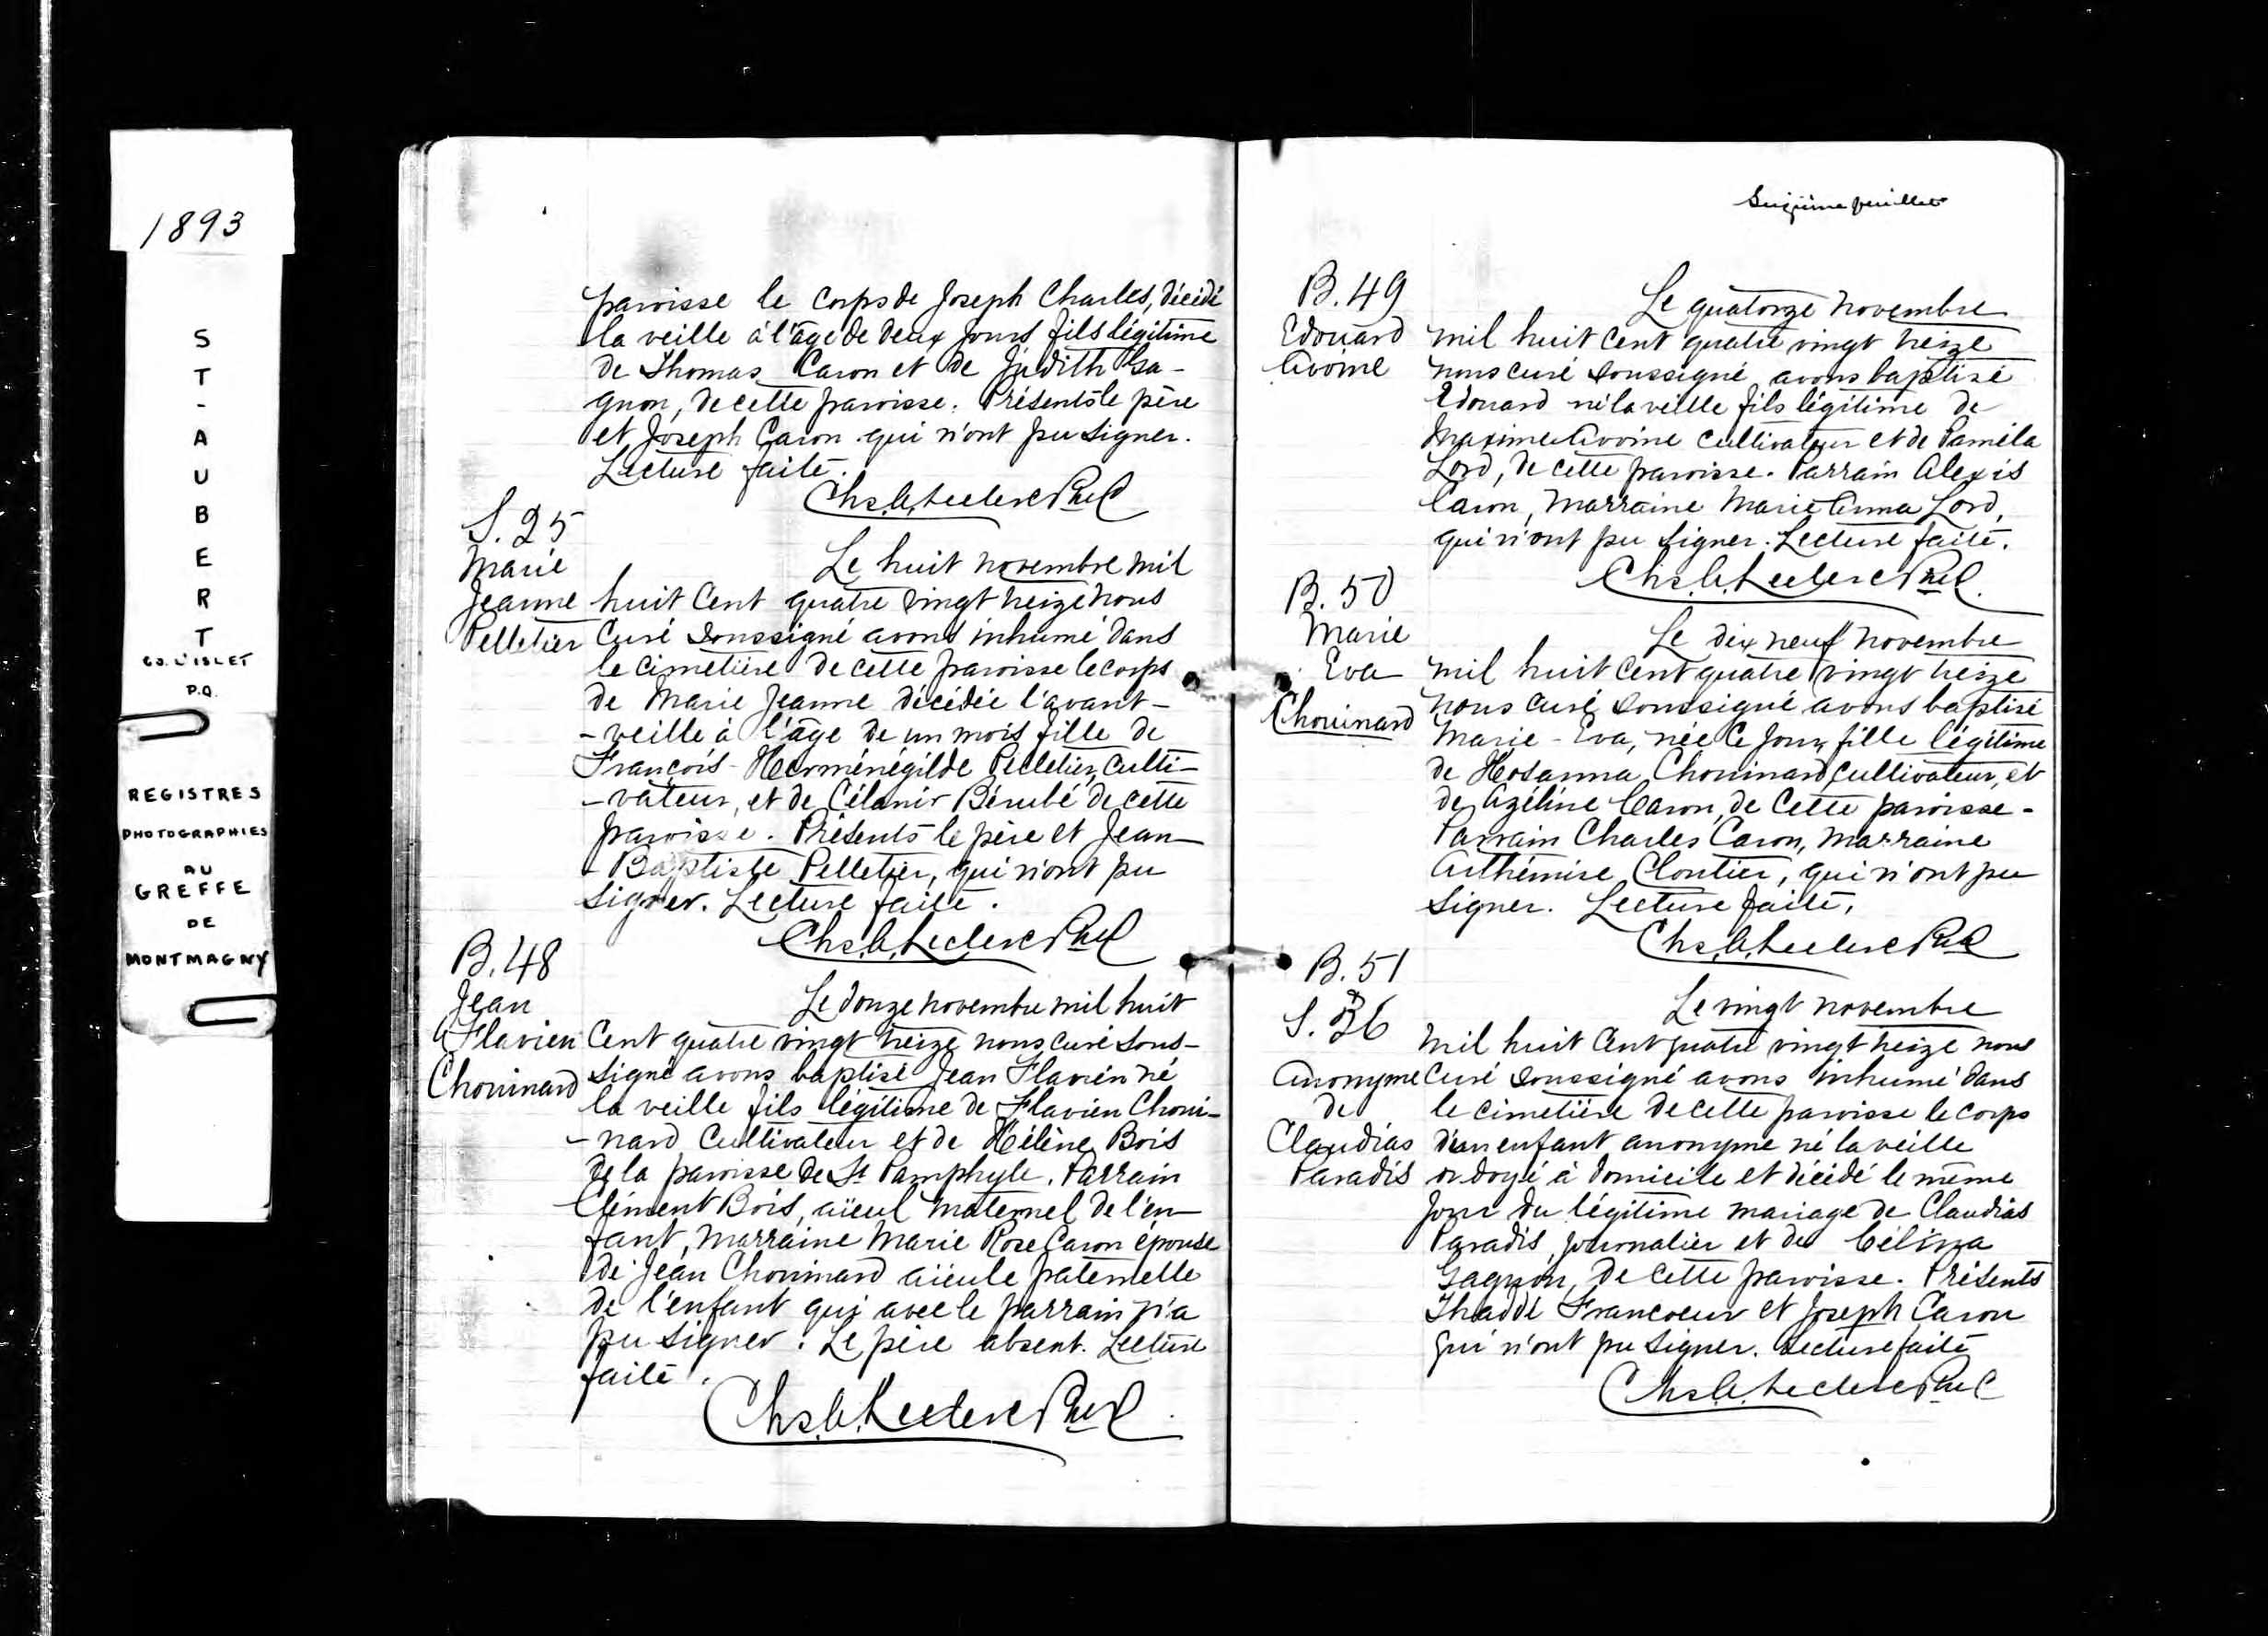 1893
S
T
-
A
U
B
E
R
T
CO. L'ISLET
P.Q.
REGISTRES
PHOTOGRAPHIES
AU
GREFFE
DE
MONTMAGNY
paroisse le corps de Joseph Charles, décédé
la veille à l'âge de deux jours fils légitime
de Thomas Caron et de Judith Ga-
gnon, de cette paroisse. Présents le père
et Joseph Caron qui n'ont pu signer.
Lecture faite.
Chs. A. Leclerc Ptre C
S. 25
Marie
Jeanne
Pelletier
Le huit novembre mil
huit cent quatre vingt treize nous
Curé soussigné avons inhumé dans
le cimetière de cette paroisse le corps
de Marie Jeanne décédée l'avant-
-veille à l'âge de un mois fille de
François-Herménégilde Pelletier, culti-
-vateur, et de Célanir Bérubé de cette
paroisse. Présents le père et Jean
-Baptiste Pelletier, qui n'ont pu
signer. Lecture faite.
Chs. A. Leclerc Ptre C
B. 48
Jean
Flavien
Chouinard
Le douze novembre mil huit
Cent quatre vingt treize nous curé sous-
signé avons baptisé Jean Flavien né
la veille fils légitime de Flavien Choui-
-nard cultivateur et de Hélène Bois
de la paroisse de St Pamphyle. Parrain
Clément Bois, aïeul maternel de l'en-
fant, marraine Marie Rose Caron épouse
de Jean Chouinard aïeule paternelle
de l'enfant qui avec le parrain n'a
pu signer. Le père absent. Lecture
faite.
Chs. A. Leclerc Ptre C
feuillet
B. 49
Edouard
Avoine
Le quatorze novembre
mil huit cent quatre vingt treize
nous curé soussigné avons baptisé
Edouard né la veille fils légitime de
Maxime Avoine cultivateur et de Paméla
Lord, de cette paroisse. Parrain Alexis
Caron, marraine Marie Anna Lord,
qui n'ont pu signer. Lecture faite.
Chs. A. Leclerc Ptre C.
B. 50
Marie
Eva
Chouinard
Le dix neuf novembre
mil huit cent quatre vingt treize
nous curé soussigné avons baptisé
Marie-Eva, née ce jour, fille légitime
de Hosanna Chouinard, cultivateur, et
de Azéline Caron, de cette paroisse-
Parrain Charles Caron, marraine
Arthémise Cloutier, qui n'ont pu
signer. Lecture faite.
Chs. A. Leclerc Ptre C
B. 51
S. 26
Anonyme
de
Claudias
Paradis
Le vingt novembre
mil huit cent quatre vingt treize nous
curé soussigné avons inhumé dans
le cimetière de cette paroisse le corps
d'un enfant anonyme né la veille
ondoyé à domicile et décédé le même
jour du légitime mariage de Claudias
Paradis, journalier et de Céline
Gagnon, de cette paroisse. Présents
Thaddé Francoeur et Joseph Caron
qui n'ont pu signer. Lecture faite
Chs. A. Leclerc Ptre C